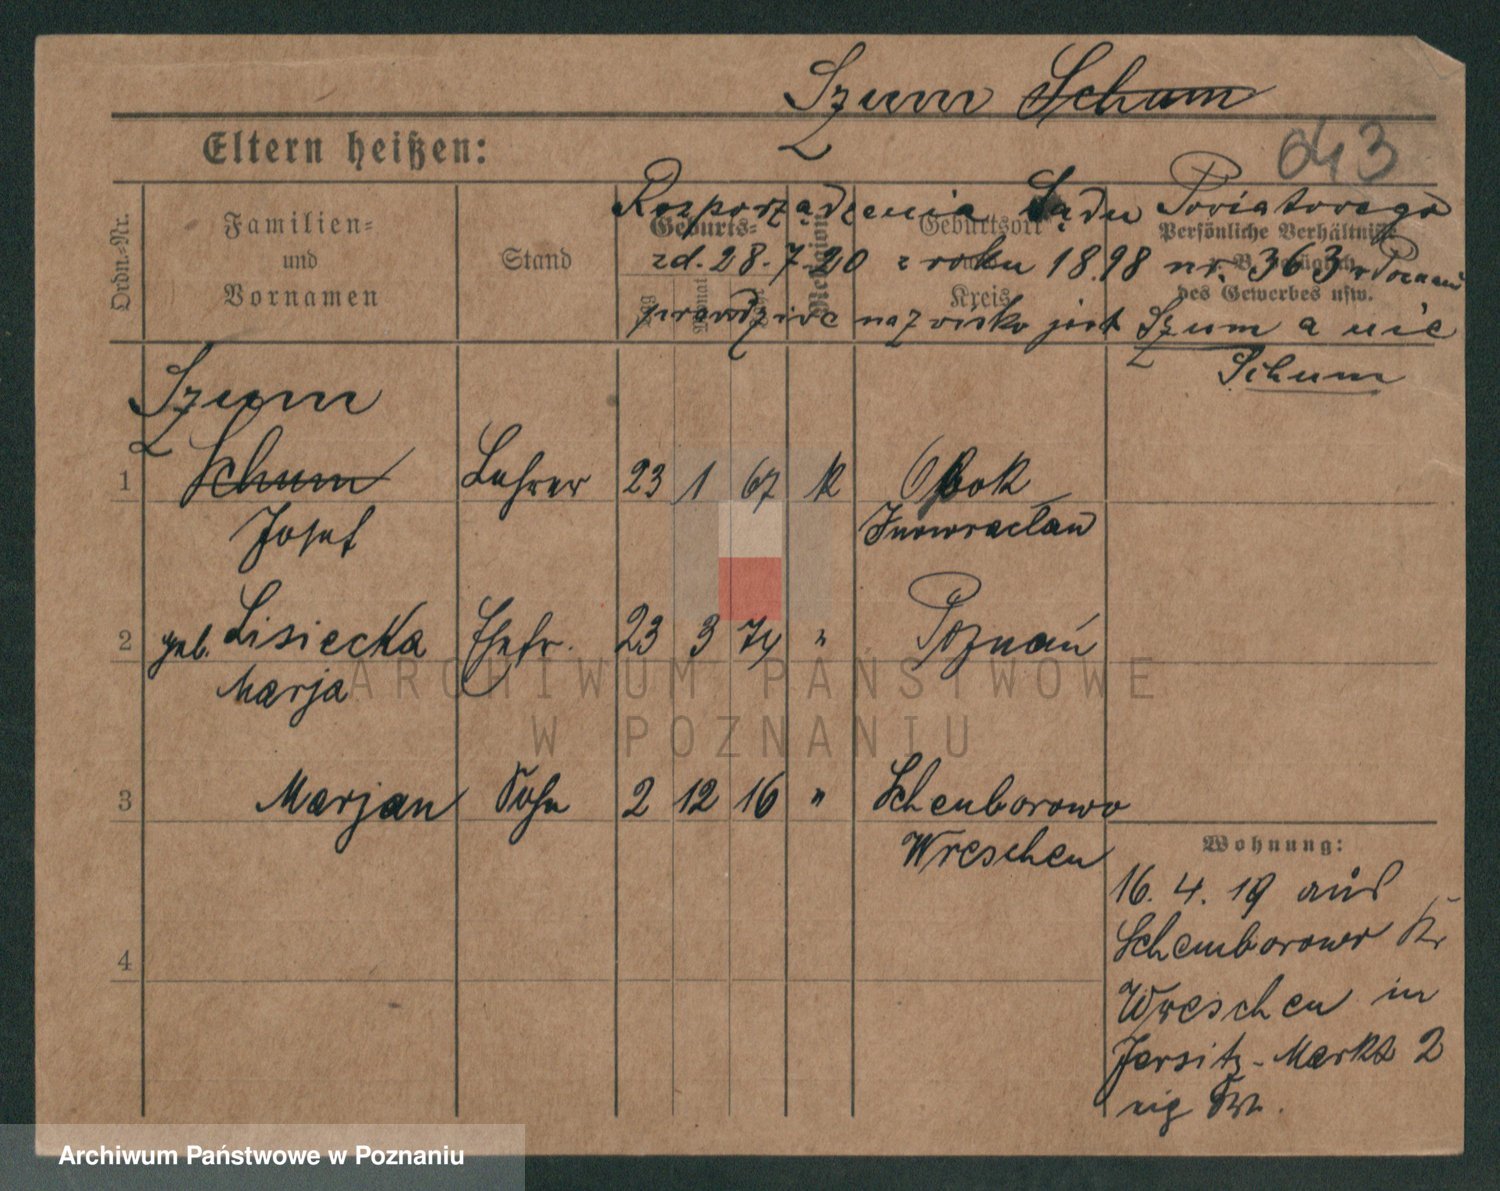 Szum Schum
Eltern heißen:
643
Rozporządzenia Sądu Powiatowego
zd. 28.7.20 z roku 1898 nr. 363 w Poznaniu
prawdziwe nazwisko jest Szum a nie
Schum
Ordn.-Nr.
Familien-
und
Vornamen
Stand
Geburts-
Tag
Monat
Jahr
Religion
Geburtsort
Kreis
Persönliche Verhältnisse
des Gewerbes usw.
Szum
1 Schum Lehrer 23 1 67 k Obok
Josef Inowracław
2 geb. Lisiecka Ehefr. 23 3 74 " Poznań
Marja
3 Marjan Sohn 2 12 16 " Schemborowo
Wreschen
4
Wohnung:
16. 4. 19 aus
Schemborowo Kr
Wreschen in
Jersitz-Markt 2
eig Ww.
ARCHIWUM PAŃSTWOWE
W POZNANIU
Archiwum Państwowe w Poznaniu